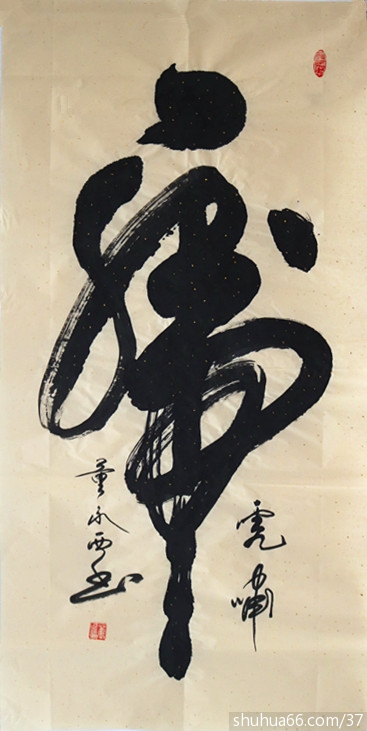 虎
虎啸
董永西书
shuhua66.com/37